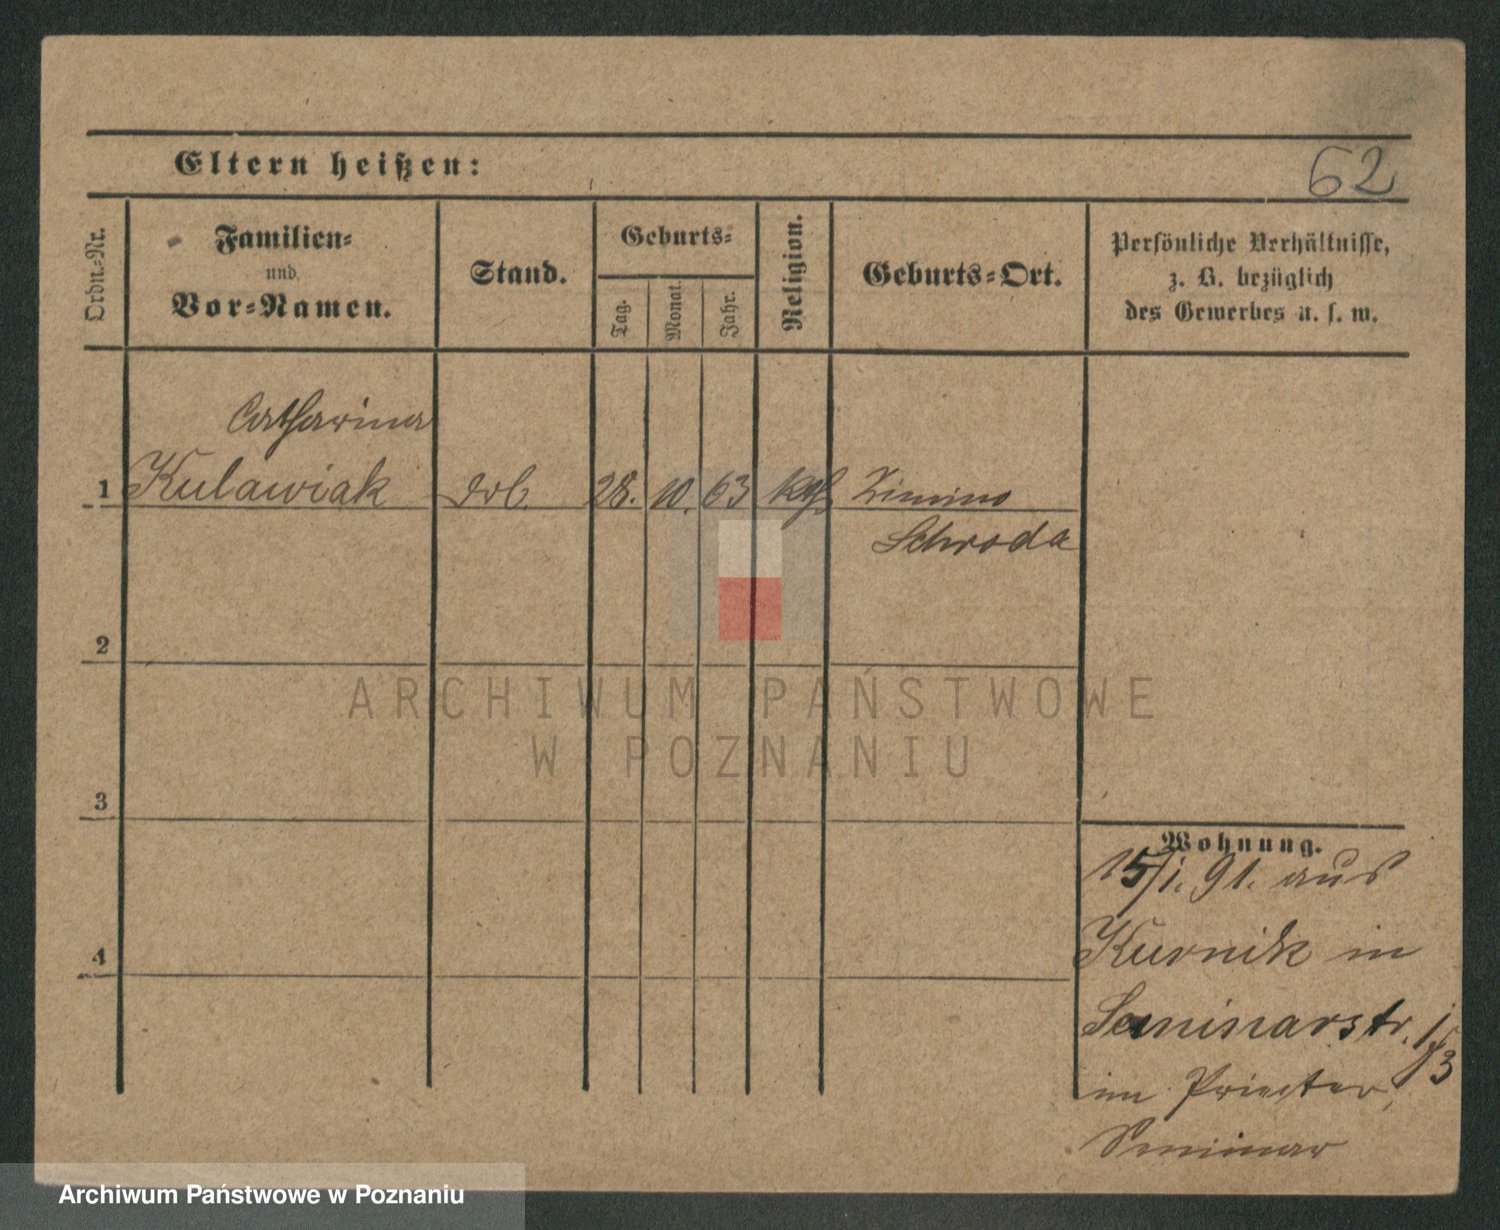 Eltern heißen:
62
Ordn.-Nr.
Familien-
und
Vor-Namen.
Stand.
Geburts-
Tag.
Monat.
Jahr.
Religion.
Geburts-Ort.
Persönliche Verhältnisse,
z. B. bezüglich
des Gewerbes u. s. w.
Catharina
1 Kulawiak 28. 10. 63 kth. Zimino
Schroda
2
3
4
Wohnung.
15/1. 91. aus
Kurnik in
Seminarstr. 1/3
im Priester
Seminar
ARCHIWUM PAŃSTWOWE
W POZNANIU
Archiwum Państwowe w Poznaniu